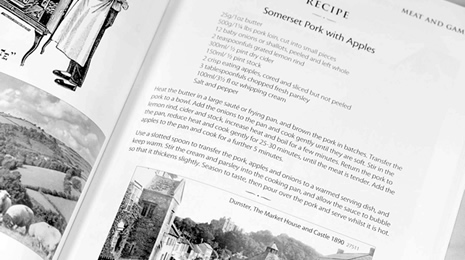 RECIPE
MEAT AND GAM
Somerset Pork with Apples
25g/1oz butter
500g/1¼ lbs pork loin, cut into small pieces
12 baby onions or shallots, peeled and left whole
2 teaspoonfuls grated lemon rind
300ml/½ pint dry cider
150ml/¼ pint stock
2 crisp eating apples, cored and sliced but not peeled
3 tablespoonfuls chopped fresh parsley
100ml/3½ fl oz whipping cream
Salt and pepper
Heat the butter in a large sauté or frying pan, and brown the pork in batches. Transfer the
pork to a bowl. Add the onions to the pan and cook gently until they are soft. Stir in the
lemon rind, cider and stock, increase heat and boil for a few minutes. Return the pork to
the pan, reduce heat and cook gently for 25-30 minutes, until the meat is tender. Add the
apples to the pan and cook for a further 5 minutes.
Use a slotted spoon to transfer the pork, apples and onions to a warmed serving dish, and
keep warm. Stir the cream and parsley into the cooking pan, and allow the sauce to bubble
so that it thickens slightly. Season to taste, then pour over the pork and serve whilst it is hot.
Dunster, The Market House and Castle 1890 27511